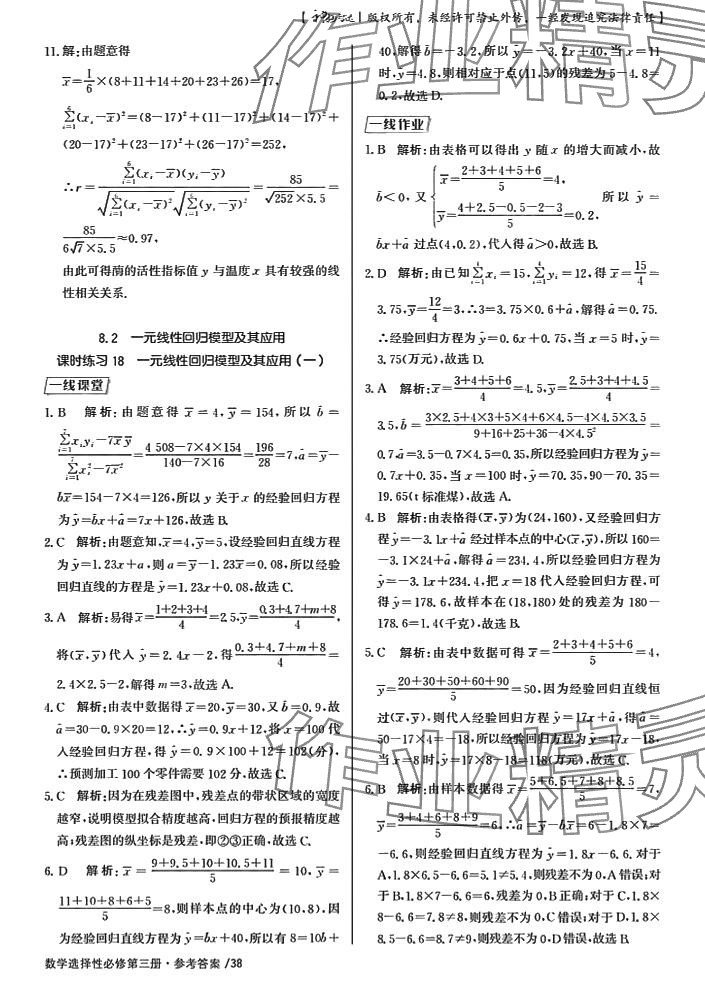 【 | 版权所有，未经许可禁止外传，一经发现追究法律责任】
11. 解：由题意得
x̄=1/6×(8+11+14+20+23+26)=17，
∑(i=1→6)(xᵢ-x̄)²=(8-17)²+(11-17)²+(14-17)²+
(20-17)²+(23-17)²+(26-17)²=252，
∴r=∑(i=1→6)(xᵢ-x̄)(yᵢ-ȳ)/(√∑(i=1→6)(xᵢ-x̄)²√∑(i=1→6)(yᵢ-ȳ)²)=85/(√252×5.5)=
85/(6√7×5.5)≈0.97，
由此可得酶的活性指标值 y 与温度 x 具有较强的线
性相关关系.
8.2 一元线性回归模型及其应用
课时练习 18 一元线性回归模型及其应用（一）
一线课堂
1. B 解析：由题意得 x̄=4，ȳ=154，所以 b̂=
(∑(i=1→7)xᵢyᵢ-7x̄ȳ)/(∑(i=1→7)xᵢ²-7x̄²)=(4 508-7×4×154)/(140-7×16)=196/28=7，â=ȳ-
b̂x̄=154-7×4=126，所以 y 关于 x 的经验回归方程
为 ŷ=b̂x+â=7x+126，故选 B.
2. C 解析：由题意知，x̄=4，ȳ=5，设经验回归直线方程
为 ŷ=1.23x+a，则 a=ȳ-1.23x̄=0.08，所以经验
回归直线的方程是 ŷ=1.23x+0.08，故选 C.
3. A 解析：易得 x̄=(1+2+3+4)/4=2.5，ȳ=(0.3+4.7+m+8)/4，
将(x̄，ȳ)代入 ŷ=2.4x-2，得(0.3+4.7+m+8)/4=
2.4×2.5-2，解得 m=3，故选 A.
4. C 解析：由表中数据得 x̄=20，ȳ=30，又 b̂=0.9，故
â=30-0.9×20=12，∴ŷ=0.9x+12，将 x=100 代
入经验回归方程，得 ŷ=0.9×100+12=102(分)，
∴预测加工 100 个零件需要 102 分，故选 C.
5. C 解析：因为在残差图中，残差点的带状区域的宽度
越窄，说明模型拟合精度越高，回归方程的预报精度越
高；残差图的纵坐标是残差，即②③正确，故选 C.
6. D 解析：x̄=(9+9.5+10+10.5+11)/5=10，ȳ=
(11+10+8+6+5)/5=8，则样本点的中心为(10，8)，因
为经验回归直线方程为 ŷ=b̂x+40，所以有 8=10b̂+
40，解得 b̂=-3.2，所以 ŷ=-3.2x+40，当 x=11
时，ŷ=4.8，则相对应于点(11，5)的残差为 5-4.8=
0.2，故选 D.
一线作业
1. B 解析：由表格可以得出 y 随 x 的增大而减小，故
b̂<0，又{x̄=(2+3+4+5+6)/5=4，ȳ=(4+2.5-0.5-2-3)/5=0.2， 所以 ŷ=
b̂x+â 过点(4，0.2)，代入得 â>0，故选 B.
2. D 解析：由已知∑(i=1→4)xᵢ=15，∑(i=1→4)yᵢ=12，得 x̄=15/4=
3.75，ȳ=12/4=3，∴3=3.75×0.6+â，解得 â=0.75.
∴经验回归方程为 ŷ=0.6x+0.75，当 x=5 时，ŷ=
3.75(万元)，故选 D.
3. A 解析：x̄=(3+4+5+6)/4=4.5，ȳ=(2.5+3+4+4.5)/4=
3.5，b̂=(3×2.5+4×3+5×4+6×4.5-4×4.5×3.5)/(9+16+25+36-4×4.5²)=
0.7，â=3.5-0.7×4.5=0.35，所以经验回归方程为 ŷ=
0.7x+0.35，当 x=100 时，ŷ=70.35，90-70.35=
19.65(t 标准煤)，故选 A.
4. B 解析：由表格得(x̄，ȳ)为(24，160)，又经验回归方
程 ŷ=-3.1x+â 经过样本点的中心(x̄，ȳ)，所以160=
-3.1×24+â，解得 â=234.4，所以经验回归方程为
ŷ=-3.1x+234.4，把 x=18 代入经验回归方程，可
得 ŷ=178.6，故样本在(18，180)处的残差为 180-
178.6=1.4(千克)，故选 B.
5. C 解析：由表中数据可得 x̄=(2+3+4+5+6)/5=4，
ȳ=(20+30+50+60+90)/5=50，因为经验回归直线恒
过(x̄，ȳ)，则代入经验回归方程 ŷ=17x+â，得 â=
50-17×4=-18，所以经验回归方程为 ŷ=17x-18，
当 x=8 时，ŷ=17×8-18=118(万元)，故选 C.
6. B 解析：由样本数据得 x̄=(5+6.5+7+8+8.5)/5=7，
ȳ=(3+4+6+8+9)/5=6，∴â=ȳ-b̂x̄=6-1.8×7=
-6.6，则经验回归直线方程为 ŷ=1.8x-6.6. 对于
A，1.8×6.5-6.6=5.1≠5.4，则残差不为 0，A 错误；对
于 B，1.8×7-6.6=6，残差为 0，B 正确；对于 C，1.8×
8-6.6=7.8≠8，则残差不为 0，C 错误；对于 D，1.8×
8.5-6.6=8.7≠9，则残差不为 0，D 错误，故选 B.
数学选择性必修第三册·参考答案 /38
作业精灵
作业精灵